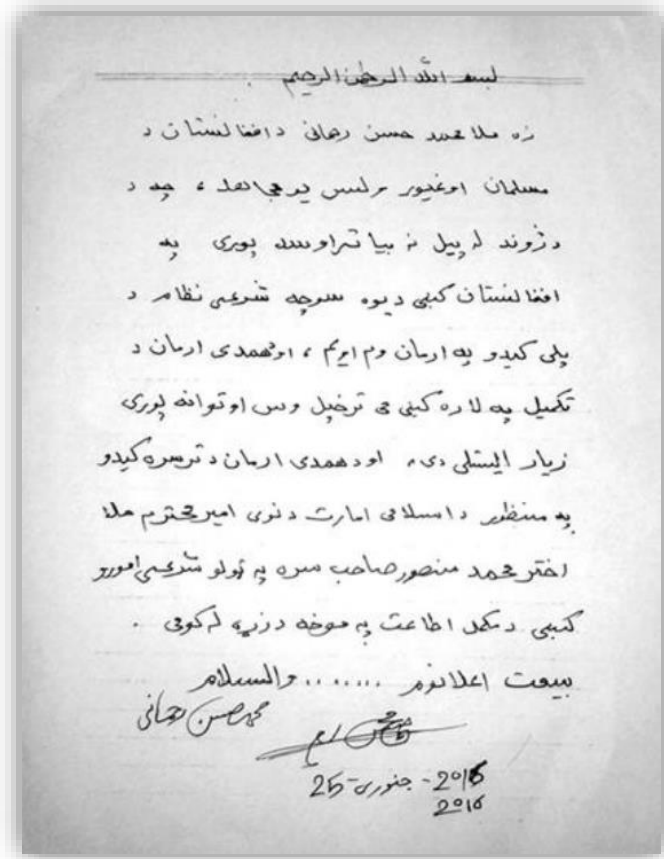 بسم الله الرحمن الرحیم
زه ملا محمد حسن رحمانی د افغانستان د
مسلمان او غیور ولس یو مجاهد ، چه د
د ژوند له پیل نه بیا تر اوسه پوری په
افغانستان کښی د یوه سوچه شرعی نظام د
پلی کیدو په ارمان وم او یم ، او همدی ارمان د
تکمیل په لاره کښی می تر خپل وس او توانه پوری
زیار ایستلی دی ، او د همدی ارمان د ترسره کیدو
په منظور د اسلامی امارت د نوی امیر محترم ملا
اختر محمد منصور صاحب سره په ټولو شرعی امورو
کښی د مکمل اطاعت په موخه د زړه له کومی .
بیعت اعلانوم ....... والسلام
محمد حسن رحمانی
2016 - جنوری - 25
2016